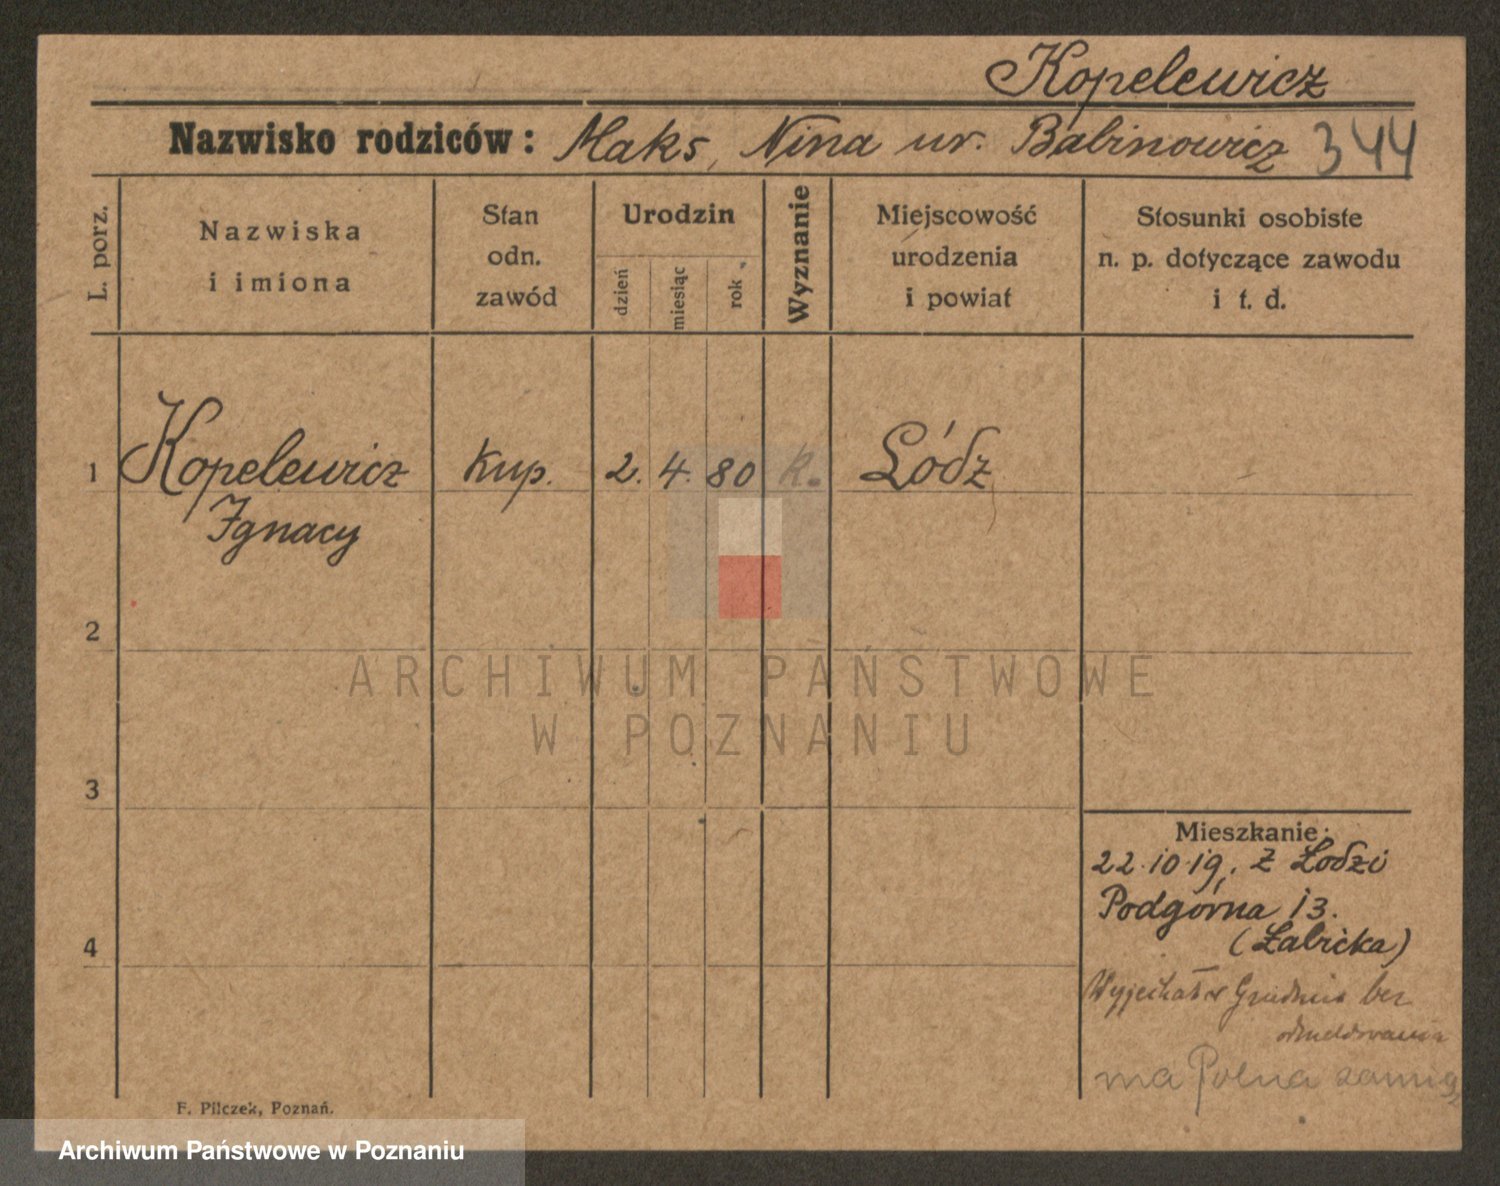 Kopelewicz
Nazwisko rodziców: Maks, Nina ur. Babinowicz 344
L. porz.
Nazwiska
i imiona
Stan
odn.
zawód
Urodzin
dzień
miesiąc
rok
Wyznanie
Miejscowość
urodzenia
i powiat
Stosunki osobiste
n. p. dotyczące zawodu
i t. d.
1 Kopelewicz Kup. 2. 4. 80 k. Łódz
Ignacy
2
3
4
Mieszkanie:
22.10.19. z Łodzi
Podgórna 13.
(Łabicka)
Wyjechał w Grudniu bez
odmeldowania
ma Polna
F. Pilczek, Poznań.
ARCHIWUM PAŃSTWOWE
W POZNANIU
Archiwum Państwowe w Poznaniu